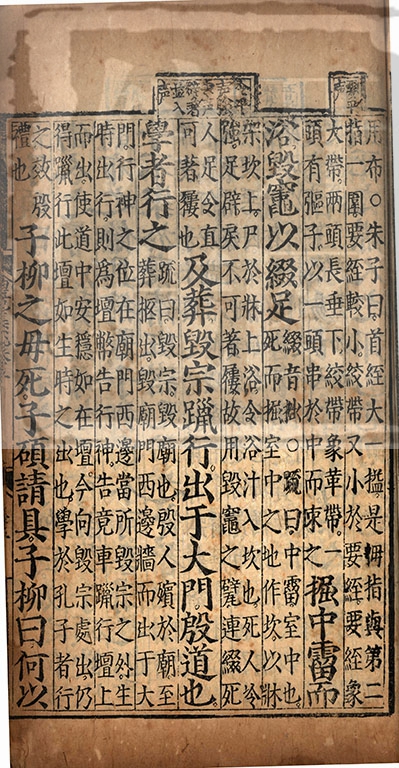 用布○朱子曰首絰大一搤是拇指與第二
指一圍要絰較小絞帶又小於要絰要絰象
大帶兩頭長垂下絞帶象革帶一
頭有彄子以一頭串於中而束之
掘中霤而
浴毀竈以綴足
綴音拙○疏曰中霤室中也
死而掘室中之地作坎以牀
架坎上尸於牀上浴令浴汁入坎也死人冷
強足辟戾不可著屨故用毀竈之甓連綴死
人足令直
可著屨也
及葬毀宗躐行出于大門殷道也
學者行之
疏曰毀宗毀廟也殷人殯於廟至
葬柩出毀廟門西邊牆而出于大
門行神之位在廟門西邊當所毀宗之外生
時出行則爲壇幣告行神告竟車躐行壇上
而出使道中安穩如在壇今向毀宗處出仍
得躐行此壇如生時之出也學於孔子者行
之效殷
禮也
子柳之毋死子碩請具子柳曰何以